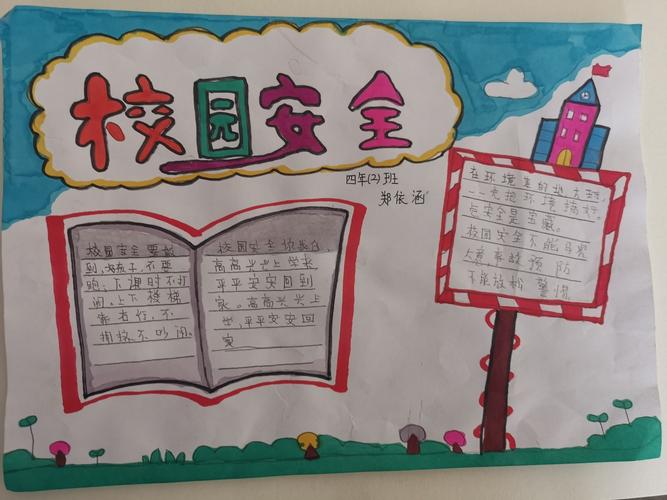 校园安全
四年(2)班
郑依涵
校园安全要做
到,好孩子,不要
跑;下课时不打
闹。上下楼梯
靠右行,不
拥挤,不吵闹。
校园安全你我他,
高高兴兴上学来
平平安安回到
家。高高兴兴上
学,平平安安回
家
在环境美的地方
环境
与安全是宝藏。
校园安全不能
事故预防
不能放松警惕